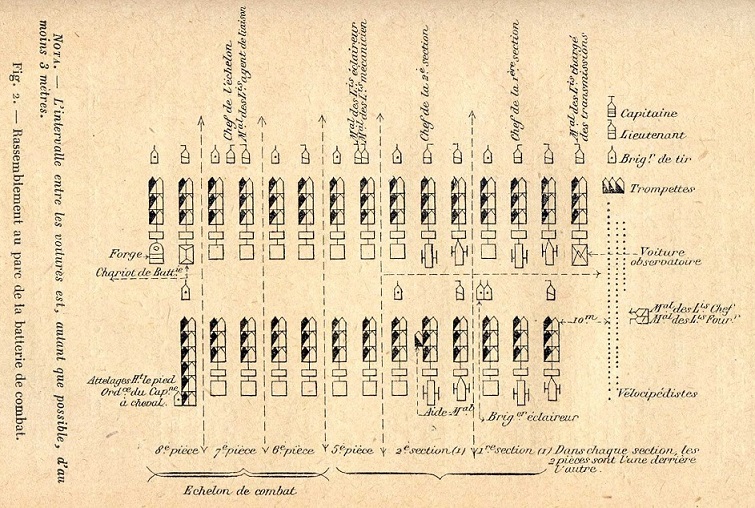 Chef de l'échelon
Mal des Lis agent de liaison
Mal des Lis éclaireur
Mal des Lis mécanicien
Chef de la 2e section
Chef de la 1ère section
Mal des Lis chargé
des transmissions
Capitaine
Lieutenant
Brigr. de tir
Trompettes
Forge
Chariot de Battie
Voiture
observatoire
10m
Mal des Lis Chef
Mal des Lis Fourr
Vélocipédistes
Attelages Ht le pied
Ordce du Capne
à cheval
Aide-Mal
Briger éclaireur
8e pièce
7e pièce
6e pièce
5e pièce
2e section (1)
1re section (1)
Dans chaque section, les
2 pièces sont l'une derrière
l'autre.
Echelon de combat
NOTA. — L'intervalle entre les voitures est, autant que possible, d'au
moins 3 mètres.
Fig. 2. — Rassemblement au parc de la batterie de combat.